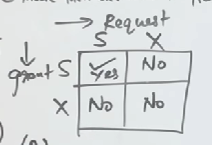 → Request
S X
↓
grant S Yes No
X No No